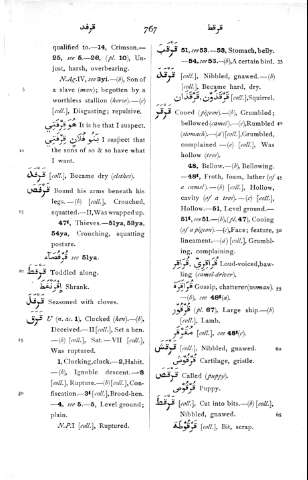 قرفد
767
قرقط
qualified to.—14, Crimson.—
25, see 5.—26, (pl. 10), Un-
just, harsh, overbearing.
N.Ag.IV, see 2yi.—(b), Son of
a slave (man); begotten by a
worthless stallion (horse).—(c)
[coll.], Disgusting; repulsive.
It is he that I suspect.
I suspect that
the sons of so & so have what
I want.
قرفد [coll.], Became dry (clothes).
قرفص Bound his arms beneath his
legs.—(b) [coll.], Crouched,
squatted.—II, Was wrapped up.
47f, Thieves.—51ya, 53ya,
54ya, Crouching, squatting
posture.
see 51ya.
قرفط Toddled along.
Shrank.
قرفل Seasoned with cloves.
U (n. ac. 1), Clucked (hen).—(b),
Deceived.—II [coll.], Set a hen.
—(b) [coll.], Sat.—VII [coll.],
Was ruptured.
1, Clucking, clock.—2, Habit.
—(b), Ignoble descent.—3
[coll.], Rupture.—(b) [coll.], Con-
fiscation.—3t [coll.], Brood-hen.
—4, see 5.—5, Level ground;
plain.
N.P.I [coll.], Ruptured.
قرقب 51, see 53.—53, Stomach, belly.
—54, see 53.—(b), A certain bird.
قرقد [coll.], Nibbled, gnawed.—(b)
[coll.], Became hard, dry.
[coll.], Squirrel.
قرقر Cooed (pigeon).—(b), Grumbled;
bellowed (camel).—(c), Rumbled
(stomach).—(d) [coll.], Grumbled,
complained.—(e) [coll.], Was
hollow (tree).
48, Bellow.—(b), Bellowing.
—48t, Froth, foam, lather (of
a camel).—(b) [coll.], Hollow,
cavity (of a tree).—(c) [coll.],
Hollow.—51, Level ground.—
51t, see 51.—(b), (pl. 47), Cooing
(of a pigeon).—(c), Face; feature,
lineament.—(d) [coll.], Grumbl-
ing, complaining.
Loud-voiced, baw-
ling (camel-driver).
Gossip, chatterer (woman).
—(b), see 48t (a).
قرقور (pl. 67), Large ship.—(b)
[coll.], Lamb.
مقرقر [coll.], see 48t (c).
[coll.], Nibbled, gnawed.
قرقوش Cartilage, gristle.
قرقص Called (puppy).
قرقوص Puppy.
قرقط [coll.], Cut into bits.—(b) [coll.],
Nibbled, gnawed.
قرقوطة [coll.], Bit, scrap.